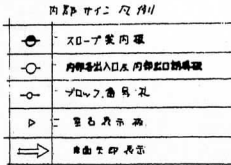 内部サイン凡例
スロープ案内板
内部各出入口及内部出口誘導板
ブロック番号札
室名表示板
矢印表示